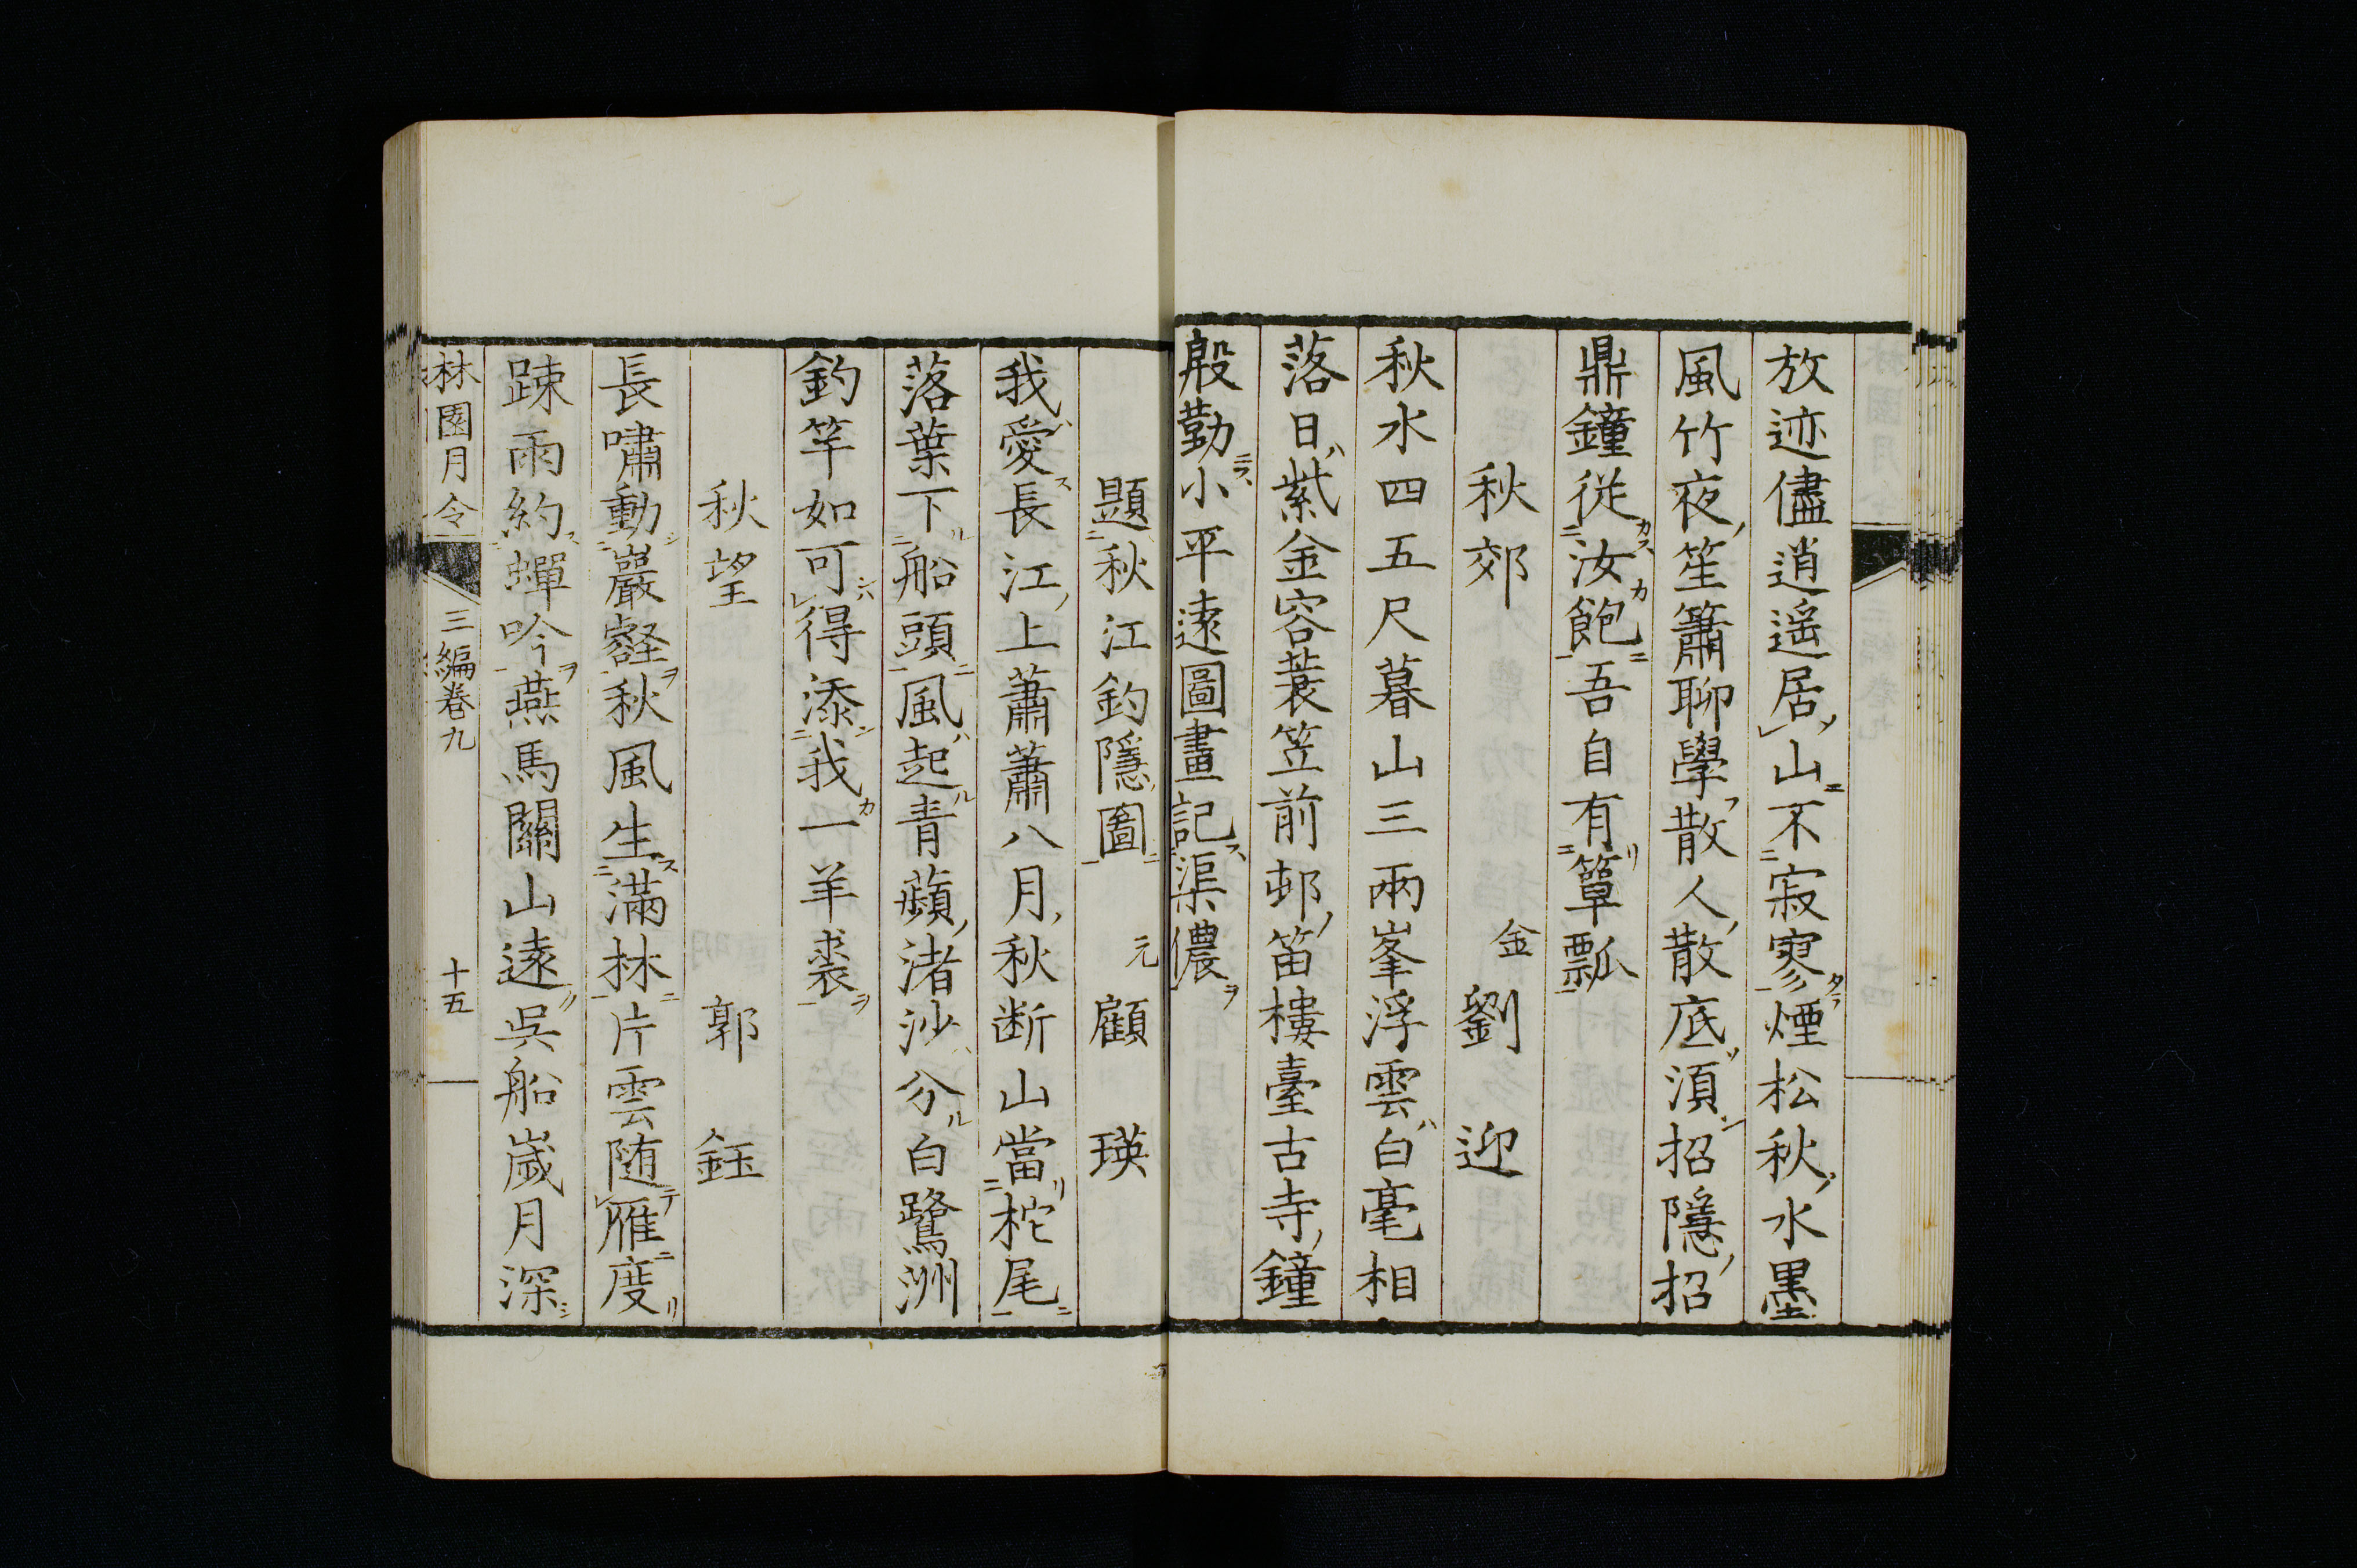 放迹儘逍遥居山不寂寥煙松秋水墨
風竹夜笙簫聊學散人散底湏招隱招
鼎鐘從汝飽吾自有簞瓢
秋郊 金 劉迎
秋水四五尺暮山三兩峯浮雲白毫相
落日紫金容蓑笠前邨笛樓臺古寺鐘
殷勤小平遠圖畫記渠儂
題秋江釣隱圖 元 顧瑛
我愛長江上蕭蕭八月秋断山當柁尾
落葉下船頭風起青蘋渚沙分白鷺洲
釣竿如可得添我一羊裘
秋望 郭鈺
長嘯動巖壑秋風生滿林片雲随雁度
踈雨約蟬吟燕馬關山遠呉船嵗月深
林園月令 三編巻九 十五